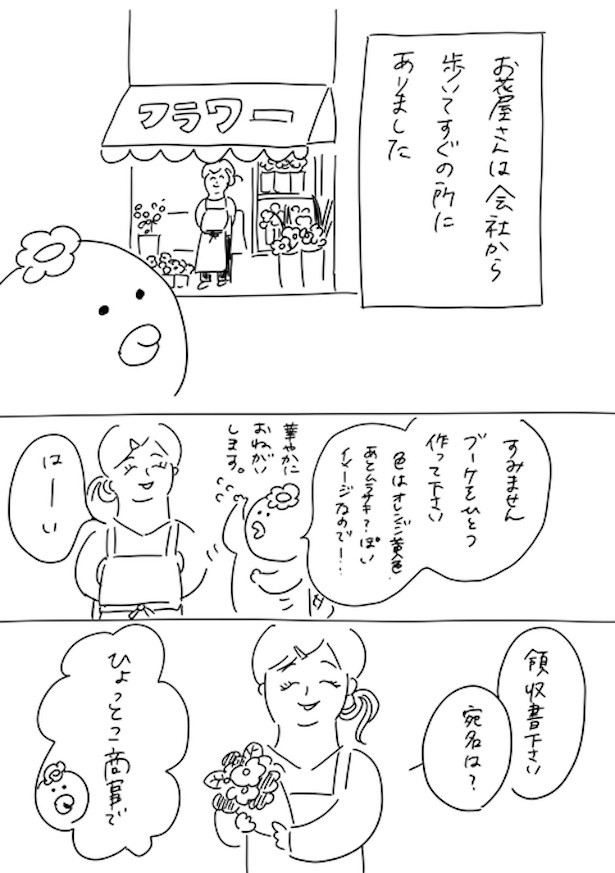 お花屋さんは会社から
歩いてすぐの所に
ありました
フラワー
すみません
ブーケをひとつ
作って下さい
色はオレンジ黄色
あとムラサキ?ぽい
イメージなのでー…
華やかに
おねがい
します。
はーい
領収書下さい
宛名は?
ひょっとこ商事で